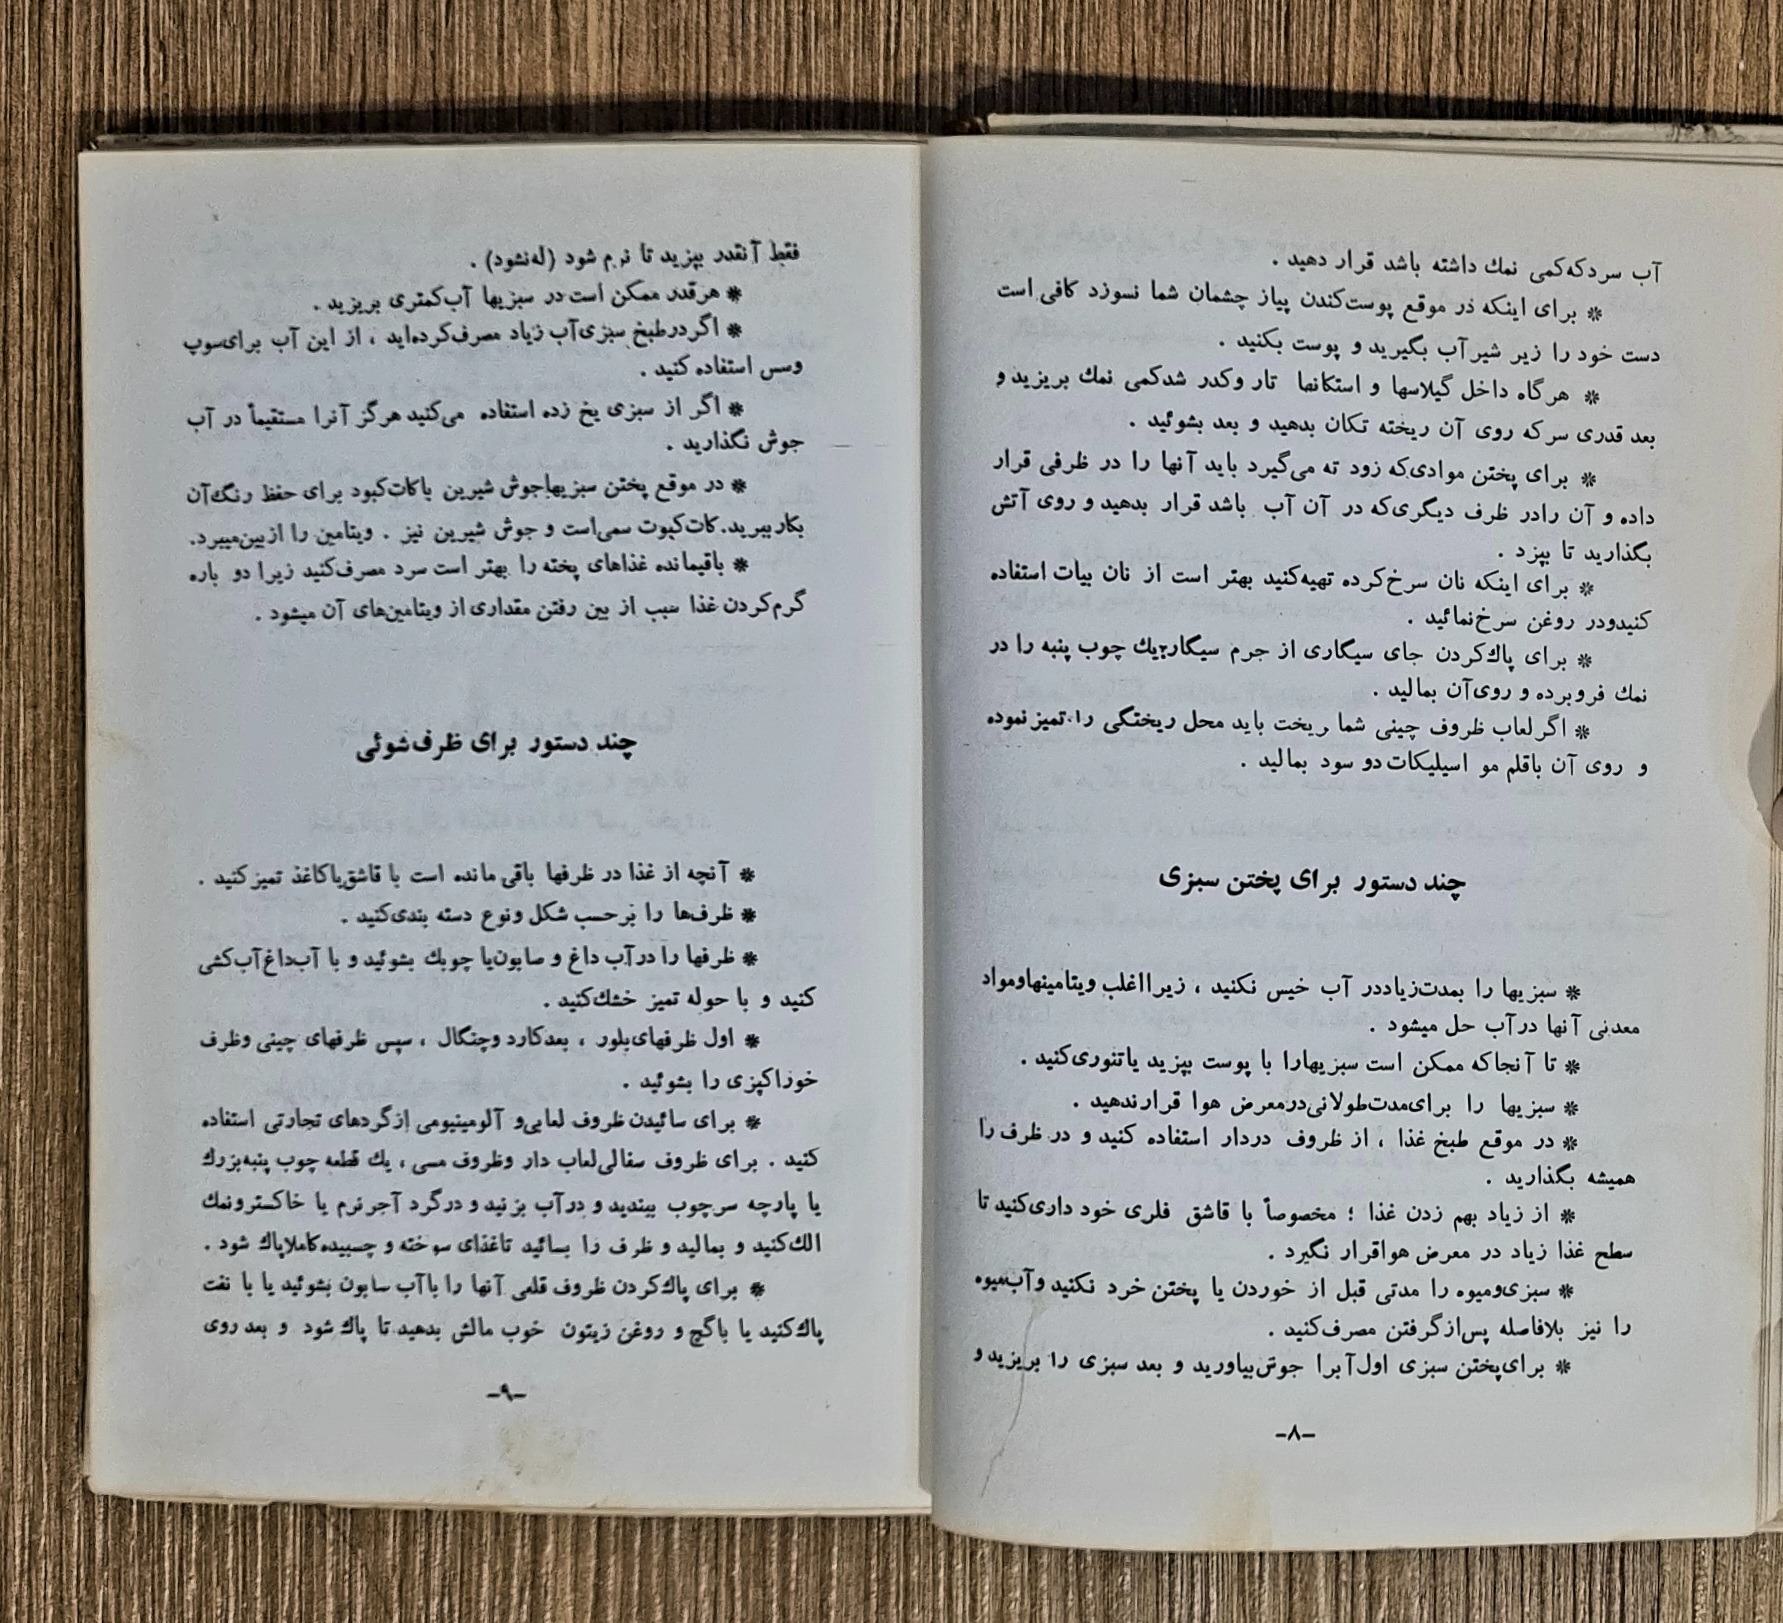 آب سردکه‌کمی نمك داشته باشد قرار دهید .
* برای اینکه در موقع پوست‌کندن پیاز چشمان شما نسوزد کافی است
دست خود را زیر شیرآب بگیرید و پوست بکنید .
* هرگاه داخل گیلاسها و استکانها تار وکدر شدکمی نمك بریزید و
بعد قدری سرکه روی آن ریخته تکان بدهید و بعد بشوئید .
* برای پختن موادی‌که زود ته می‌گیرد باید آنها را در ظرفی قرار
داده و آن رادر ظرف دیگری‌که در آن آب باشد قرار بدهید و روی آتش
بگذارید تا بپزد .
* برای اینکه نان سرخ‌کرده تهیه‌کنید بهتر است از نان بیات استفاده
کنیدودر روغن سرخ‌نمائید .
* برای پاك‌کردن جای سیگاری از جرم سیگار؛یك چوب پنبه را در
نمك فروبرده و روی‌آن بمالید .
* اگرلعاب ظروف چینی شما ریخت باید محل ریختگی را تمیزنموده
و روی آن باقلم مو اسیلیکات دو سود بمالید .
چند دستور برای پختن سبزی
* سبزیها را بمدت‌زیاددر آب خیس نکنید ، زیرااغلب ویتامینهاومواد
معدنی آنها درآب حل میشود .
* تا آنجاکه ممکن است سبزیهارا با پوست بپزید یاتنوری‌کنید .
* سبزیها را برای‌مدت‌طولانی‌درمعرض هوا قرارندهید .
* در موقع طبخ غذا ، از ظروف دردار استفاده کنید و در ظرف را
همیشه بگذارید .
* از زیاد بهم زدن غذا ؛ مخصوصاً با قاشق فلزی خود داری‌کنید تا
سطح غذا زیاد در معرض هواقرار نگیرد .
* سبزی‌ومیوه را مدتی قبل از خوردن یا پختن خرد نکنید وآب‌میوه
را نیز بلافاصله پس‌ازگرفتن مصرف‌کنید .
* برای‌پختن سبزی اول‌آبرا جوش‌بیاورید و بعد سبزی را بریزید و
-۸-
فقط آنقدر بپزید تا نرم شود (له‌نشود) .
* هرقدر ممکن است‌در سبزیها آب‌کمتری بریزید .
* اگردرطبخ سبزی‌آب زیاد مصرف‌کرده‌اید ، از این آب برای‌سوپ
وسس استفاده کنید .
* اگر از سبزی یخ زده استفاده می‌کنید هرگز آنرا مستقیماً در آب
جوش نگذارید .
* در موقع پختن سبزیهاجوش شیرین یاکات‌کبود برای حفظ رنگ‌آن
بکارببرید.کات‌کبوت سمی‌است و جوش شیرین نیز . ویتامین را ازبین‌میبرد.
* باقیمانده غذاهای پخته را بهتر است سرد مصرف‌کنید زیرا دو باره
گرم‌کردن غذا سبب از بین رفتن مقداری از ویتامین‌های آن میشود .
چند دستور برای ظرف‌شوئی
* آنچه از غذا در ظرفها باقی مانده است با قاشق‌یاکاغذ تمیزکنید .
* ظرف‌ها را برحسب شکل ونوع دسته بندی‌کنید .
* ظرفها را درآب داغ و صابون‌یا چوبك بشوئید و با آب‌داغ‌آب‌کشی
کنید و با حوله تمیز خشك‌کنید .
* اول ظرفهای‌بلور ، بعدکارد وچنگال ، سپس ظرفهای چینی وظرف
خوراکپزی را بشوئید .
* برای سائیدن ظروف لعابی‌و آلومینیومی ازگردهای تجارتی استفاده
کنید . برای ظروف سفالی‌لعاب دار وظروف مسی ، یك قطعه چوب پنبه‌بزرك
یا پارچه سرچوب ببندید و درآب بزنید و درگرد آجرنرم یا خاکسترونمك
الك‌کنید و بمالید و ظرف را بسائید تاغذای سوخته و چسبیده‌کاملاپاك شود .
* برای پاك‌کردن ظروف قلعی آنها را باآب سابون بشوئید یا با نفت
پاك‌کنید یا باگچ و روغن زیتون خوب مالش بدهید تا پاك شود و بعد روی
-۹-